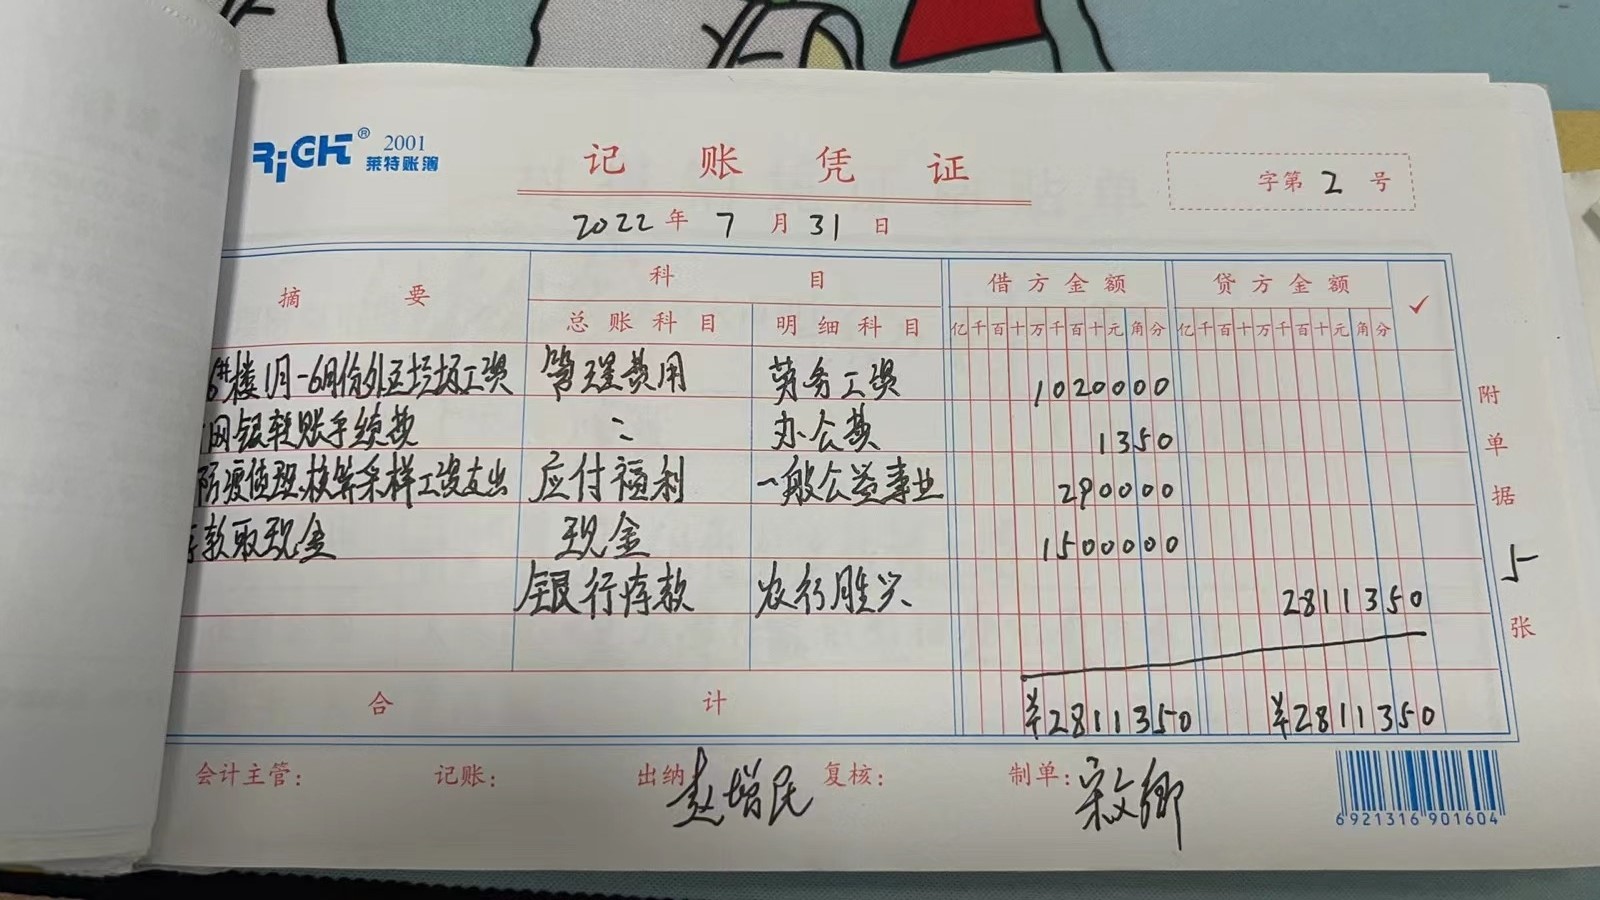 RiGHT® 2001
莱特账簿
记账凭证
字第 2 号
2022 年 7 月 31 日
摘要 科目 借方金额 贷方金额 ✓
总账科目 明细科目 亿千百十万千百十元角分 亿千百十万千百十元角分
6#楼1月-6月份外 工资 管理费用 劳务工资 1020000
网银转账手续费 〃 办公费 1350
防疫值班、核算采样工资支出 应付福利 一般公益事业 290000
款取现金 现金 1500000
银行存款 农行胜兴 2811350
合计 ¥2811350 ¥2811350
附单据 5 张
会计主管: 记账: 出纳 赵增民 复核: 制单:
6921316901604